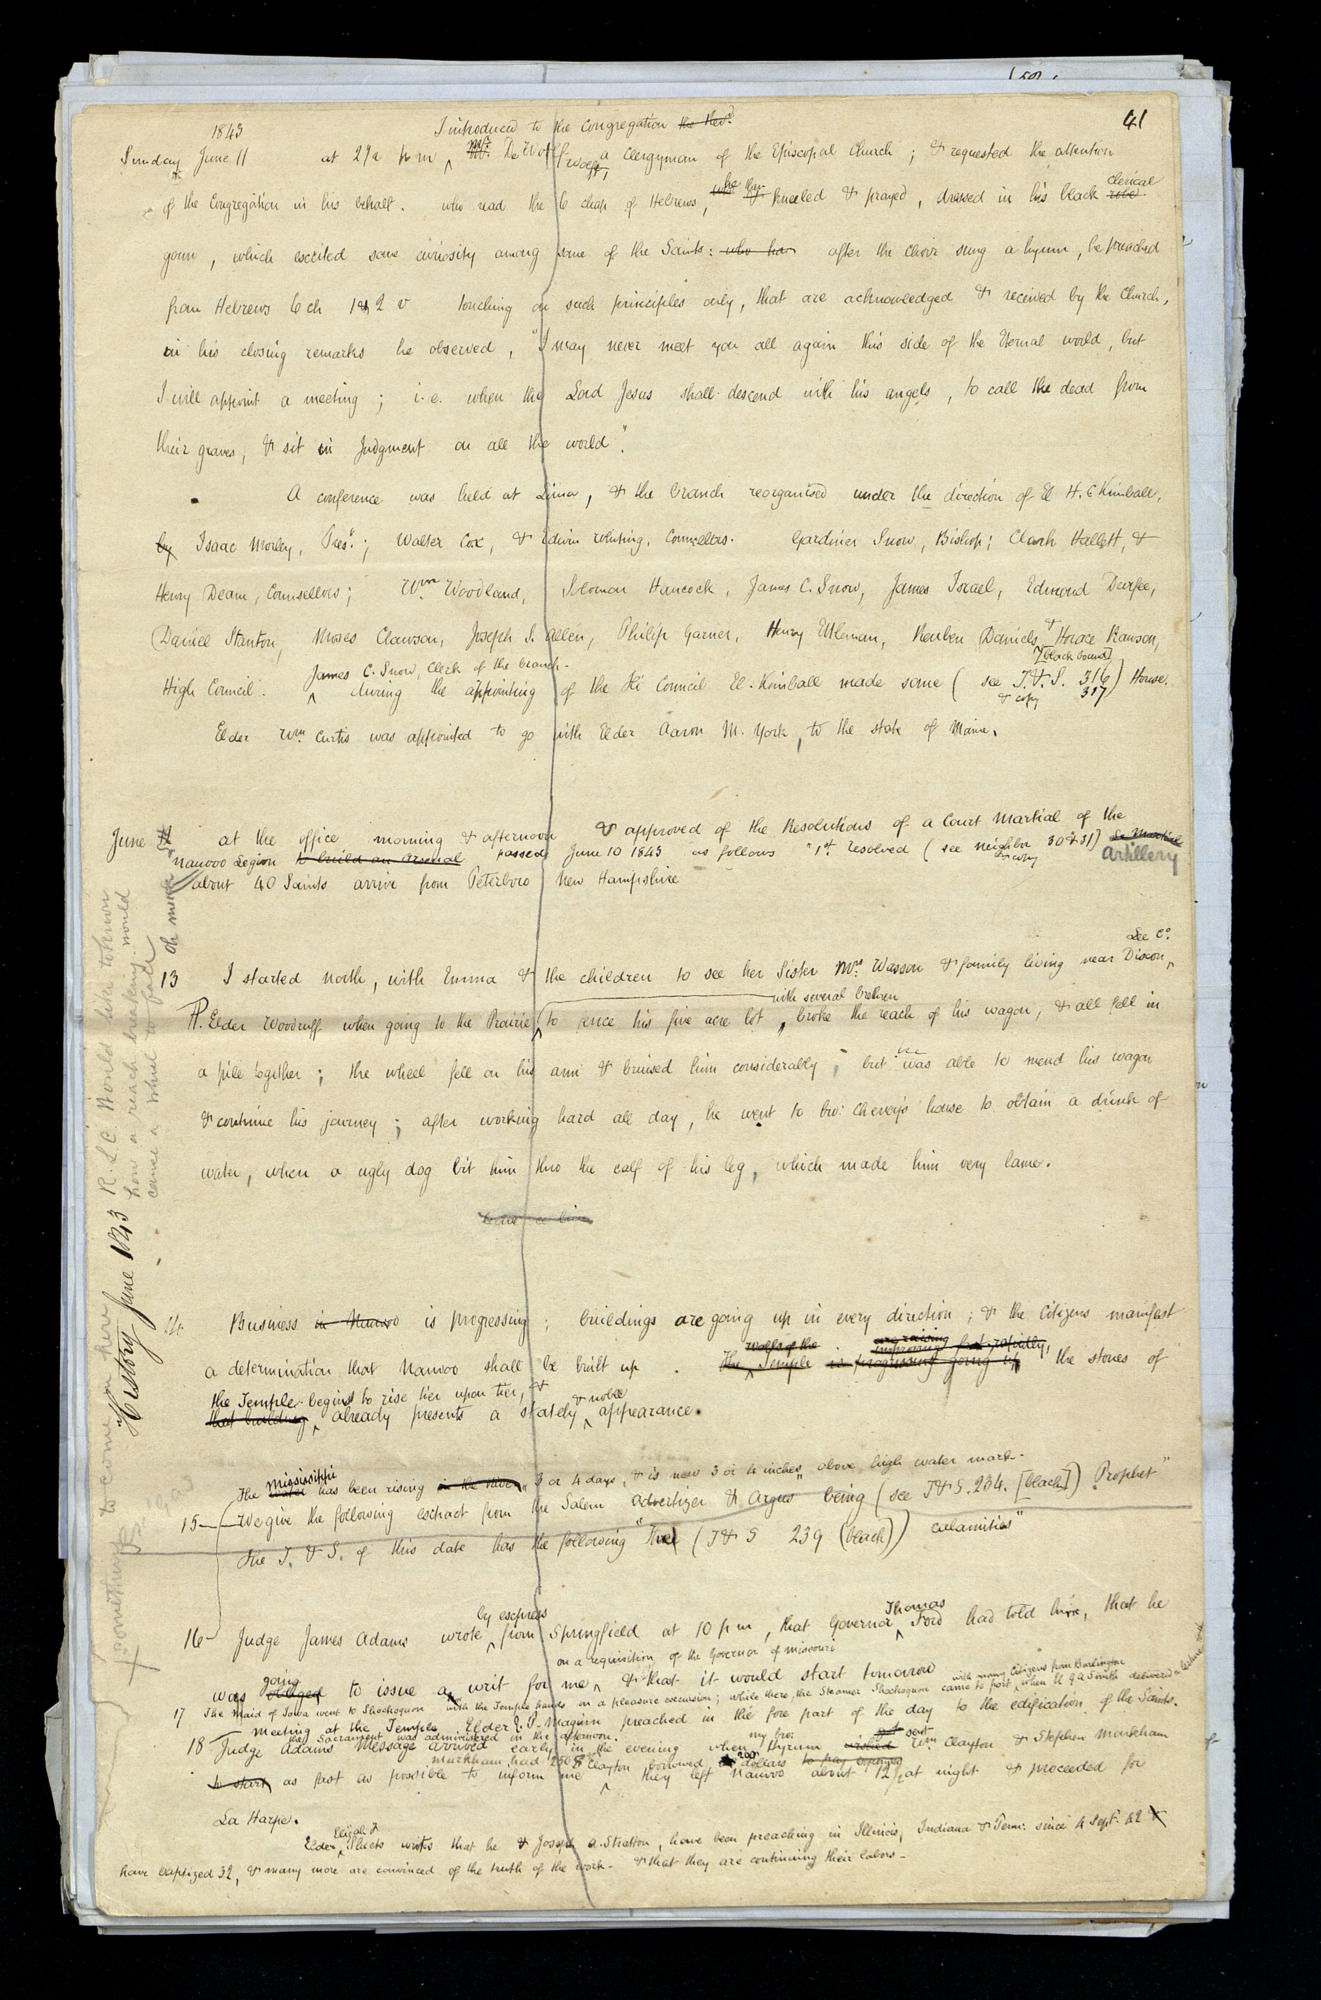 41
1843
Introduced to the Congregation the Revd
Sunday June 11 at 2½ p m ^ Mr. De Wolf, a Clergyman of the Episcopal Church; & requested the attention
of the Congregation in his behalf. who read the 6 chap of Hebrews, he then kneeled & prayed, dressed in his black clerical robe
gown, which excited some curiosity among some of the Saints: who had after the choir sung a hymn, he preached
from Hebrews 6 ch 1 & 2 v touching on such principles only, that are acknowledged & received by the Church,
in his closing remarks he observed, "I may never meet you all again this side of the Eternal world, but
I will appoint a meeting; i.e. when the Lord Jesus shall descend with his angels, to call the dead from
their graves, & sit in Judgment on all the world".
A conference was held at Lima, & the branch reorganised under the direction of El H. C Kimball,
by Isaac Morley, Prest.; Walter Cox, & Edwin Whiting, Counsellors. Gardiner Snow, Bishop; Clark Hallett, &
Henry Deam, Counsellors; Wm Woodland, Solomon Hancock, James C. Snow, James Israel, Edmond Durfee,
Daniel Stanton, Moses Clawson, Joseph S. Allen, Philip Garner, Henry Ulman, Reuben Daniels & Horace Rawson,
James C. Snow, Clerk of the branch-
[black bound]
High Council. ^ during the appointing of the Hi Council El. Kimball made some (see T. & S. 316) House.
& copy 317
Elder Wm. Curtis was appointed to go with Elder Aaron M. York, to the state of Maine.
June at the office morning & afternoon & approved of the Resolutions of a Court Martial of the
Nauvoo Legion to build an Arsenal passed June 10 1843 as follows "1st. resolved (see neighbor 30 & 31)
& copy artillery
about 40 Saints arrive from Peterboro New Hampshire
Lee Co.
13 I started north, with Emma & the children to see her Sister Mrs. Wasson & family living near Dixon, ^
with several brethren
P. Elder Woodruff when going to the Prairie ^ to fence his five acre lot, broke the reach of his wagon, & all fell in
a pile together; the wheel fell on his arm & bruised him considerably; but he was able to mend his wagon
& continue his journey; after working hard all day, he went to bro: Cheney's house to obtain a drink of
water, when a ugly dog bit him thro the calf of his leg, which made him very lame.
leave a line
R. L. C. Would like to know
how a reach breaking would
cause a wheel to fall
History June 1843
something to come in here
Business in Nauvoo is progressing; buildings are going up in every direction; & the Citizens manifest
walls of the are raising improving fast rapidly,
a determination that Nauvoo shall be built up. The ^ Temple is progressing going up the stones of
the Temple begins to rise tier upon tier, & & noble
that building ^ already presents a stately ^ appearance.
The Mississippi water has been rising in the river 3 or 4 days, & is now 3 or 4 inches above high water mark-
15 We give the following extract from the Salem advertizer & Argus being (see T & S. 234. [black]) Prophet"
The T. & S. of this date has the following "The (T & S 239 (black)) calamities"
by express Thomas
16 Judge James Adams wrote ^ from Springfield at 10 p m, that Governor ^ Ford had told him, that he
on a requisition of the Governor of Missouri
was going obliged to issue a writ for me ^ & that it would start tomorrow
with many Citizens from Burlington
17 The Maid of Iowa went to Shockoquon with the Temple hands on a pleasure excursion; while there, the Steamer Shockoquon came to port ^ when El G A Smith delivered a lecture
meeting at the Temple Elder E. P. Maginn preached in the fore part of the day to the edification of the Saints.
the Sacrament was administered in the afternoon.
18 Judge Adams' Message arrived early in the evening when my bro: Hyrum sent Wm. Clayton & Stephen Markham
Markham had 250 $ Clayton borrowed 200 dollars to pay expenses
to start as fast as possible to inform me ^ they left Nauvoo about 12 at night & proceeded for
La Harpe.
Elder Elijah F Sheets writes that he & Joseph A. Stratton, have been preaching in Illinois, Indiana & Penn: since 4 Sept. 42 &
have baptized 32, & many more are convinced of the truth of the work- & that they are continuing their labors-